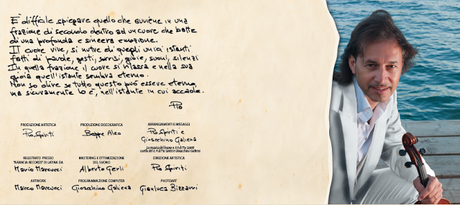 E' difficile spiegare quello che avviene in una
frazione di secondo dentro ad un cuore che batte
di una profonda e sincera emozione.
Il cuore vive, si nutre di quegli unici istanti
fatti di parole, gesti, sorrisi, gioie, suoni, silenzi
In quella frazione il cuore si rilassa e nella sua
gioia quell'istante sembra eterno.
Non so dire se tutto questo può essere eterno,
ma sicuramente lo è, nell'istante in cui accade.
Pio
PRODUZIONE ARTISTICA
Pio Spiriti
PRODUZIONE DISCOGRAFICA
Beppe Aleo
ARRANGIAMENTI E MISSAGGI
Pio Spiriti e
Gioacchino Galiena
REGISTRATO PRESSO
Marco Marcucci
MASTERING E OTTIMIZZAZIONE
DEL SUONO
Alberto Gerli
DIREZIONE ARTISTICA
Pio Spiriti
ARTWORK
Marco Marcucci
PROGRAMMAZIONE COMPUTER
Gioacchino Galiena
Gianluca Bizzarri